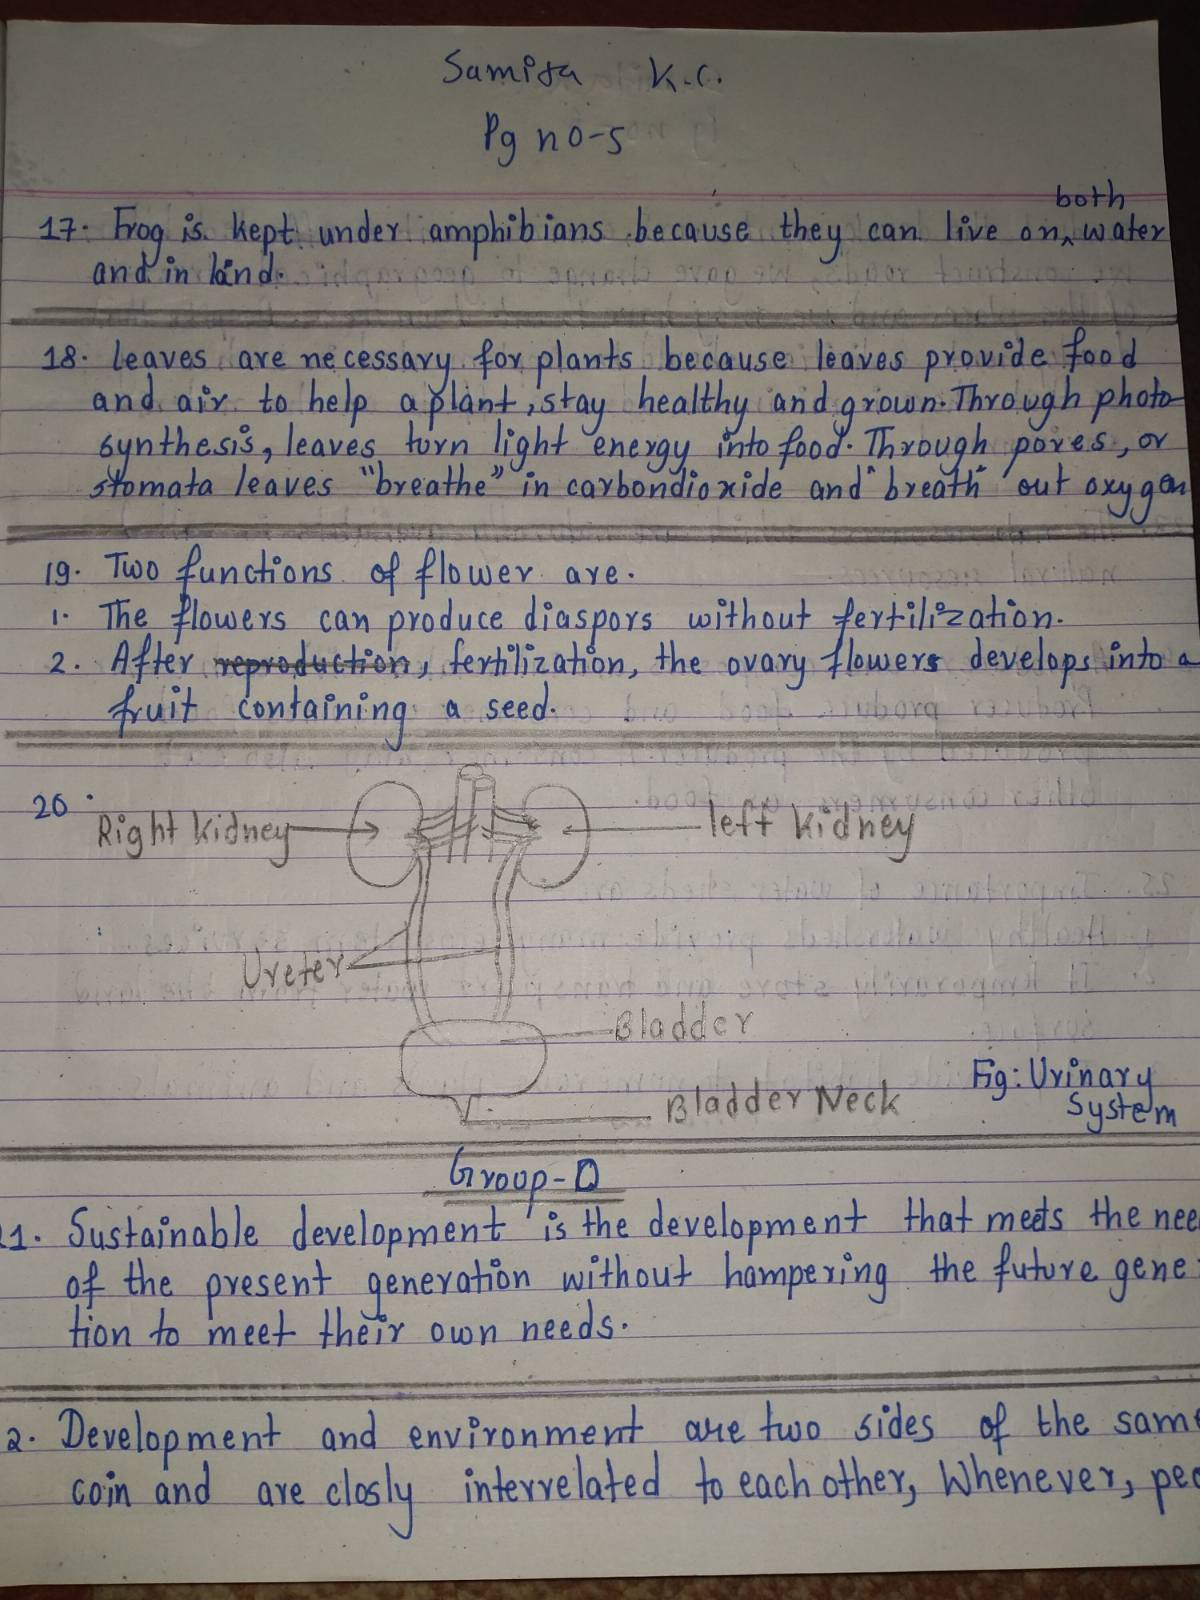 Samita K.C.
Pg no-5
both
17. Frog is kept under amphibians because they can live on^ water
and in land.
18. leaves are necessary for plants because leaves provide food
and air to help a plant, stay healthy and grown. Through photo-
synthesis, leaves turn light energy into food. Through pores, or
stomata leaves "breathe" in carbondioxide and "breath" out oxygen
19. Two functions of flower are.
1. The flowers can produce diaspors without fertilization.
2. After reproduction, fertilization, the ovary flowers develops into a
fruit containing a seed.
20.
Right Kidney
left kidney
Ureter
Bladder
Bladder Neck
Fig: Urinary
System
Group-D
1. Sustainable development is the development that meets the nee
of the present generation without hampering the future gene
tion to meet their own needs.
2. Development and environment are two sides of the same
coin and are closly interrelated to each other, Whenever, peo